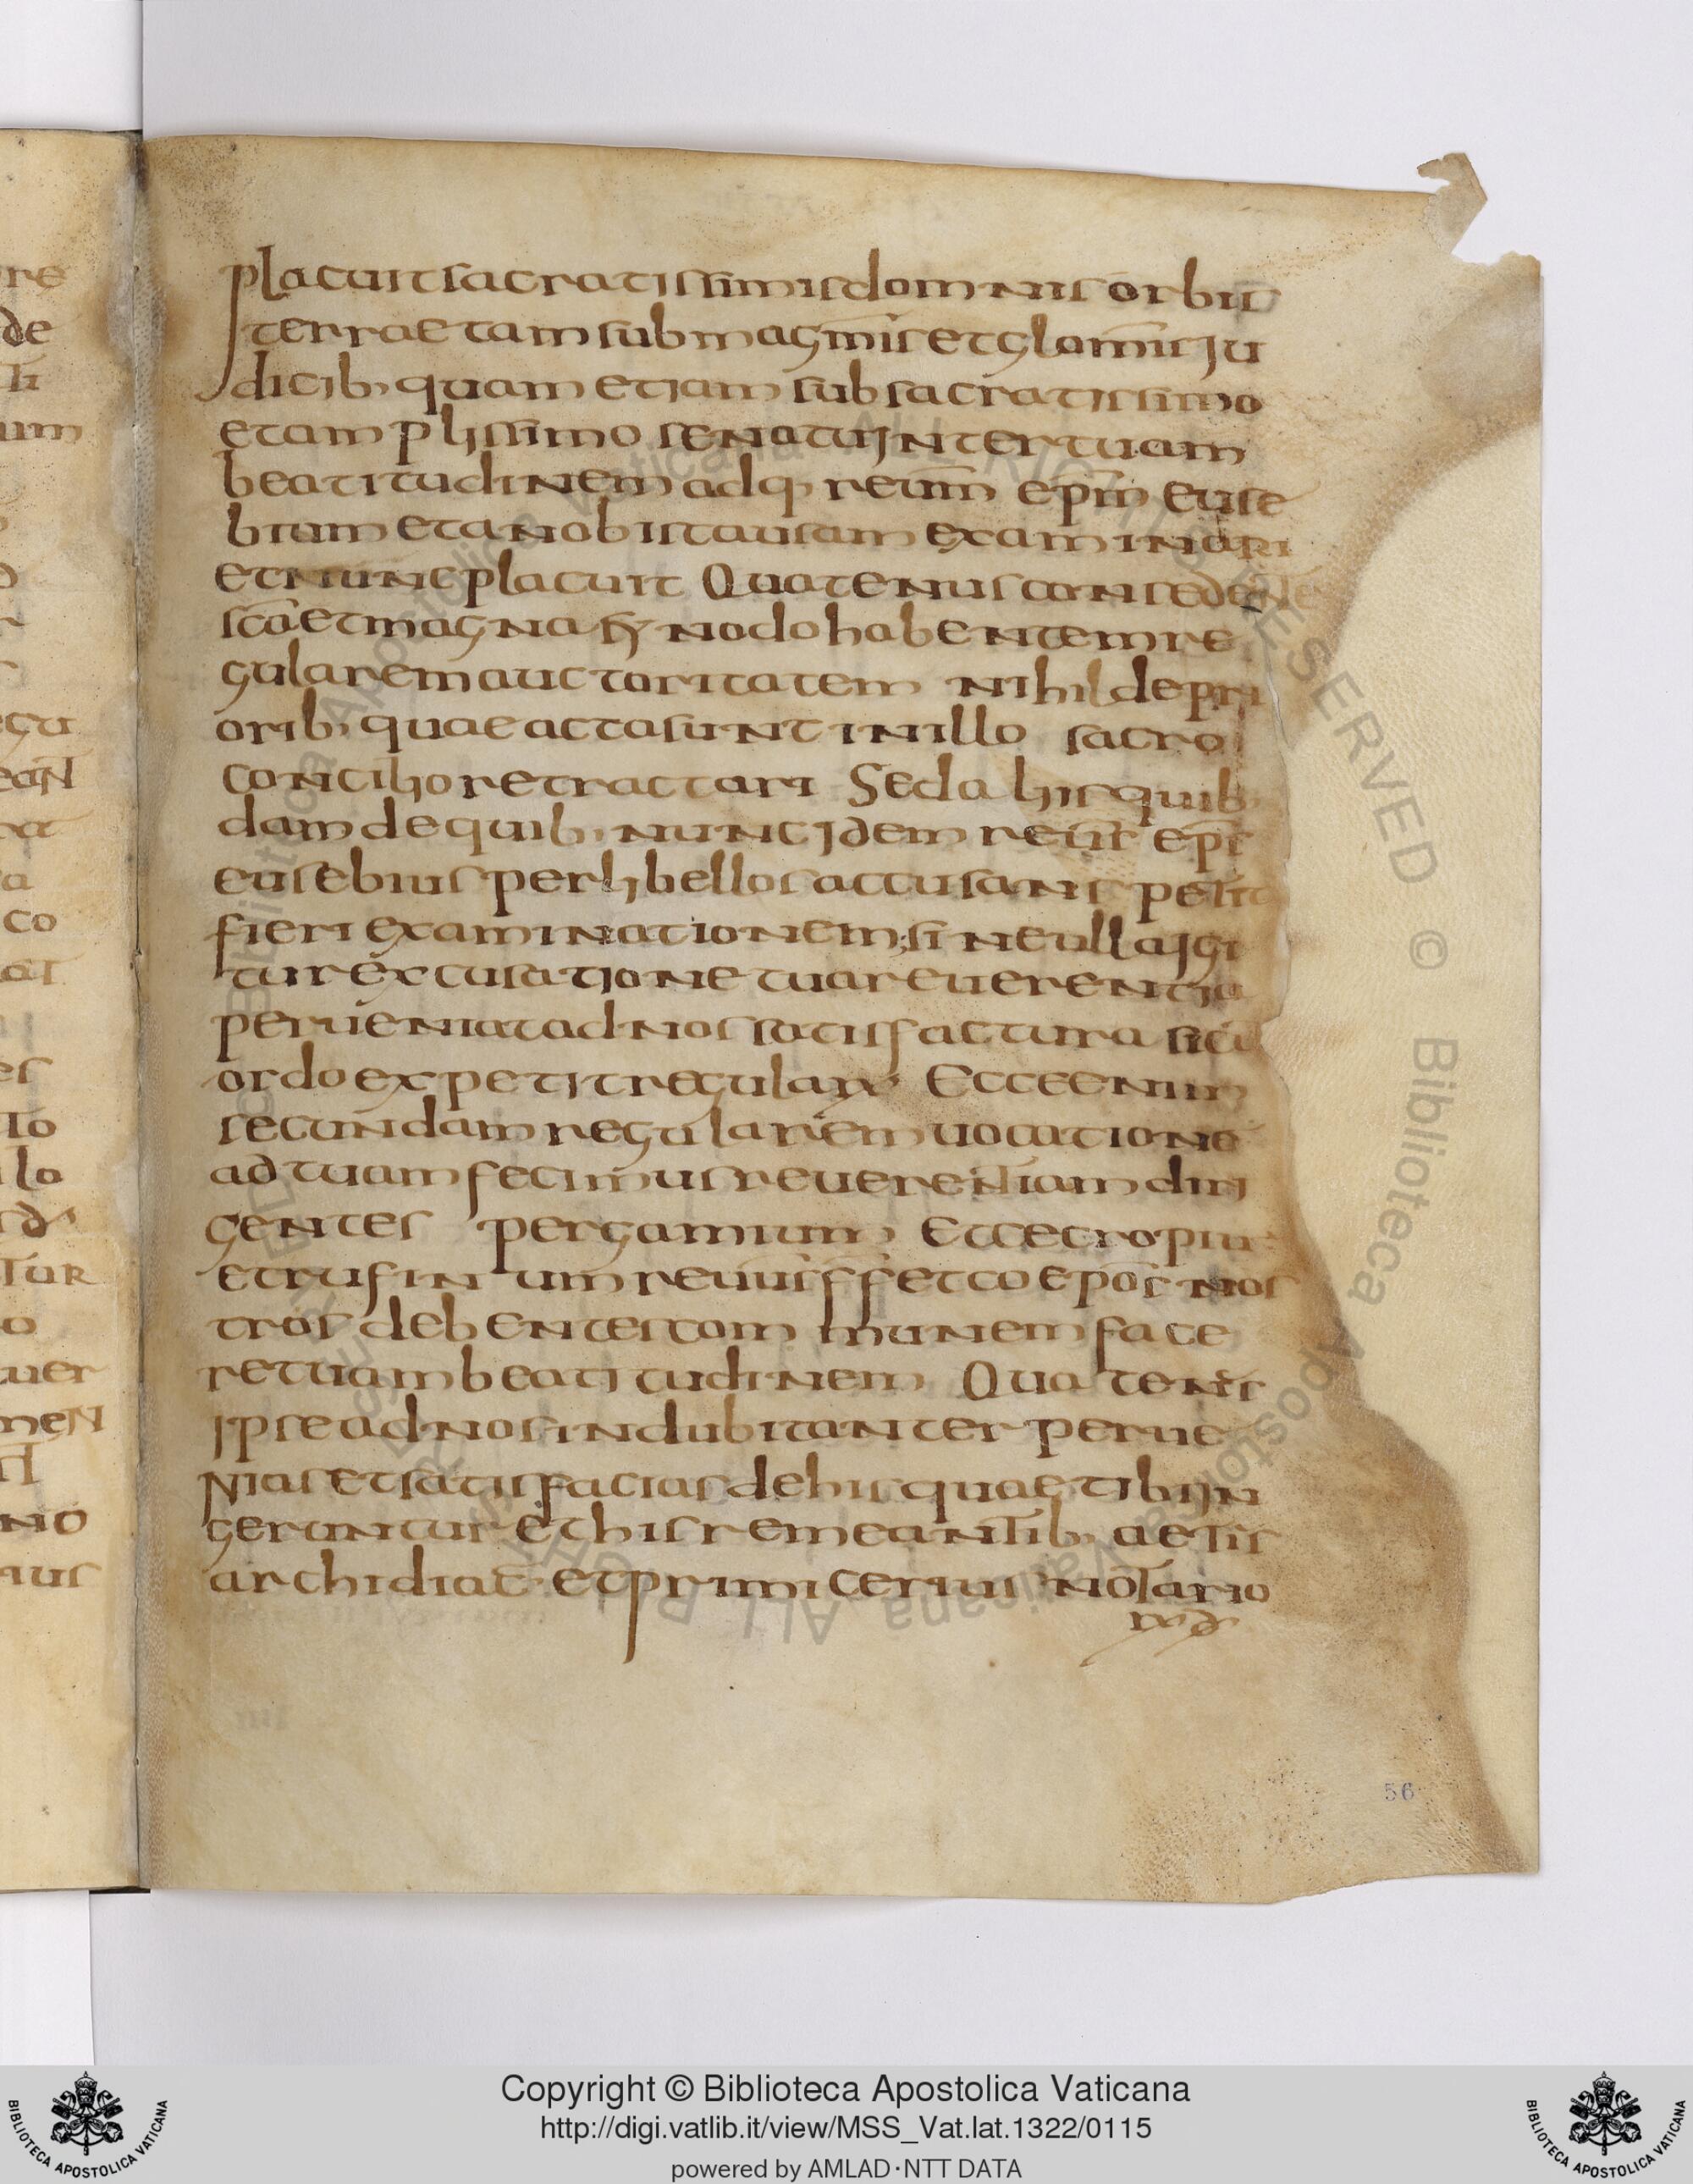 placuit sacratissimis dominis orbis
terrae tam sub magnis et glomis iu
dicib· quam etiam sub sacratissimo
et amplissimo senatu inter tuam
beatitudinem adq· reum̅ ep̅m euse
bium et a nobis causam examinari
et nunc placuit Quatenus consedente
sc̅a et magna synodo habentem re
gularem auctoritatem nihil de pri
orib· quae acta sunt in illo sacro
concilio retractari Sed a his quib·
dam de quib· nunc idem reu̅s ep̅s
eusebius per libellos accusans petit
fieri examinationem; sine ulla igi
tur excusatione tua reuerentia
perueniat ad nos satisfactura sicut
ordo expetit regularis Ecce enim
secundam regularem uocatione
ad tuam fecimus reuerentiam diri
gentes pergamium Et cecropium
et rufinum reuu̅s f̅f̅ et coep̅os nos
tros debentes com munem face
re tuam beatitudinem Quatenus
ipse ad nos indubitanter perue
nias et satisfacias de his quae tibi in
geruntur et his remeantib· aetis
archidiac̅ et primicerius notario
56
Copyright © Biblioteca Apostolica Vaticana
http://digi.vatlib.it/view/MSS_Vat.lat.1322/0115
powered by AMLAD·NTT DATA
BIBLIOTECA APOSTOLICA VATICANA
BIBLIOTECA APOSTOLICA VATICANA